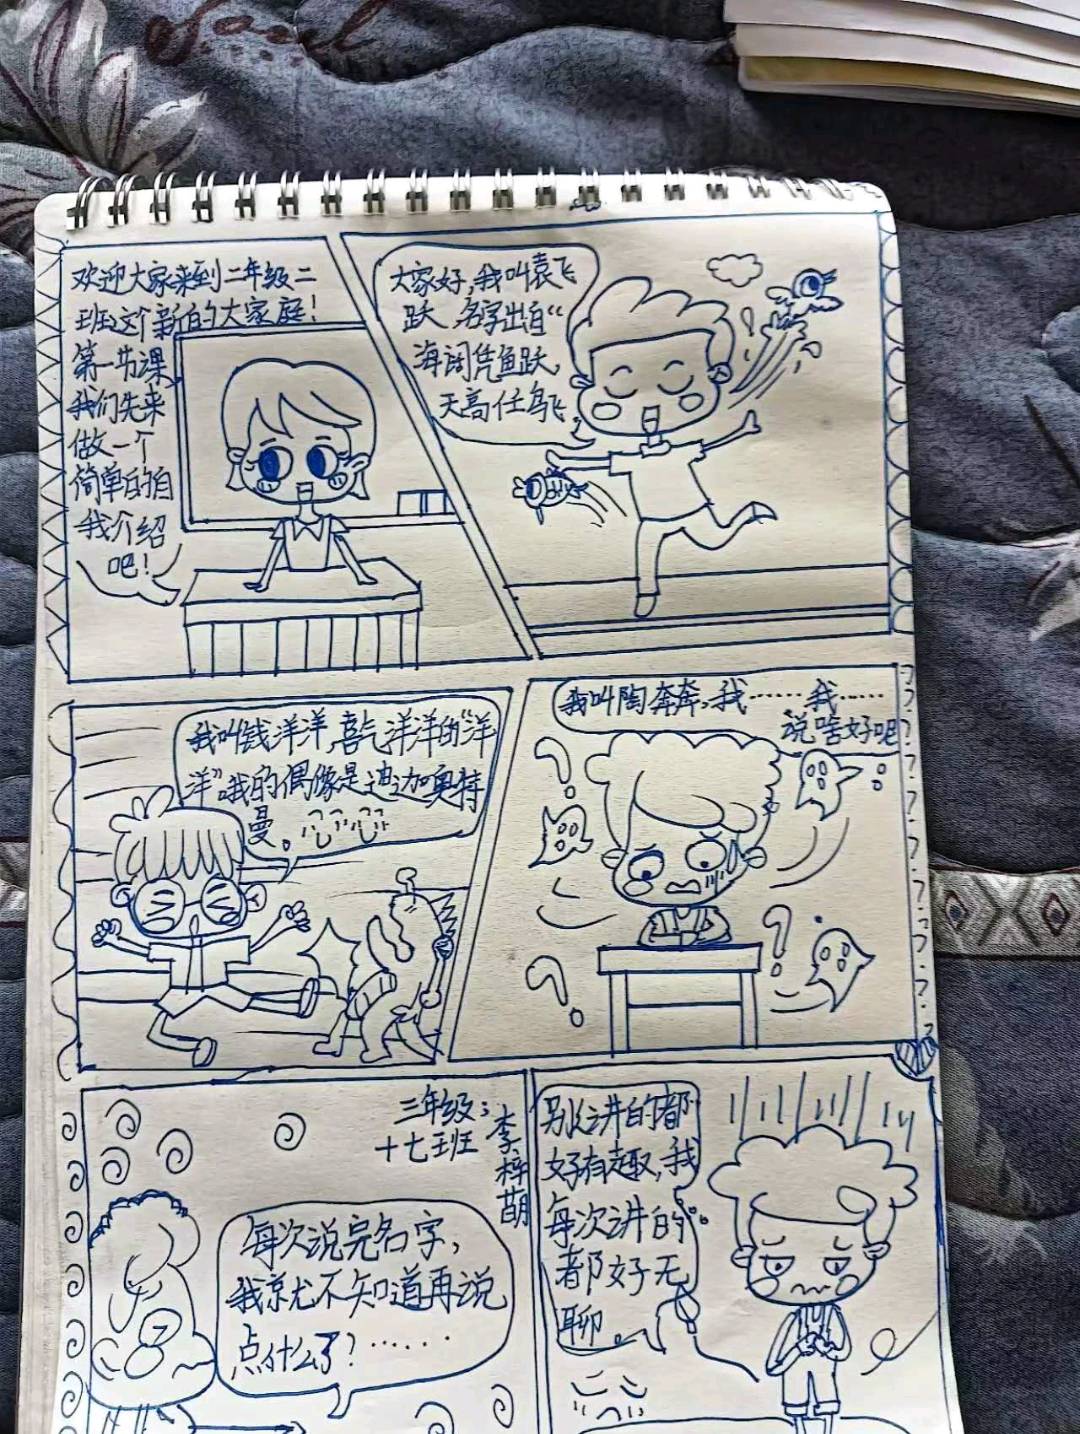 欢迎大家来到二年级二
班这个新的大家庭！
第一节课
我们先来
做一个
简单的自
我介绍
吧！
大家好，我叫袁飞
跃，名字出自“
海阔凭鱼跃，
天高任鸟飞，
我叫钱洋洋，喜气洋洋的“洋
洋”我的偶像是迪迦奥特
曼。
我叫陶奔奔，我……我……
说啥好呢？
三年级；
十七班
李梓萌
每次说完名字，
我就不知道再说
点什么了？……
别人讲的都
好有趣，我
每次讲的
都好无
聊。